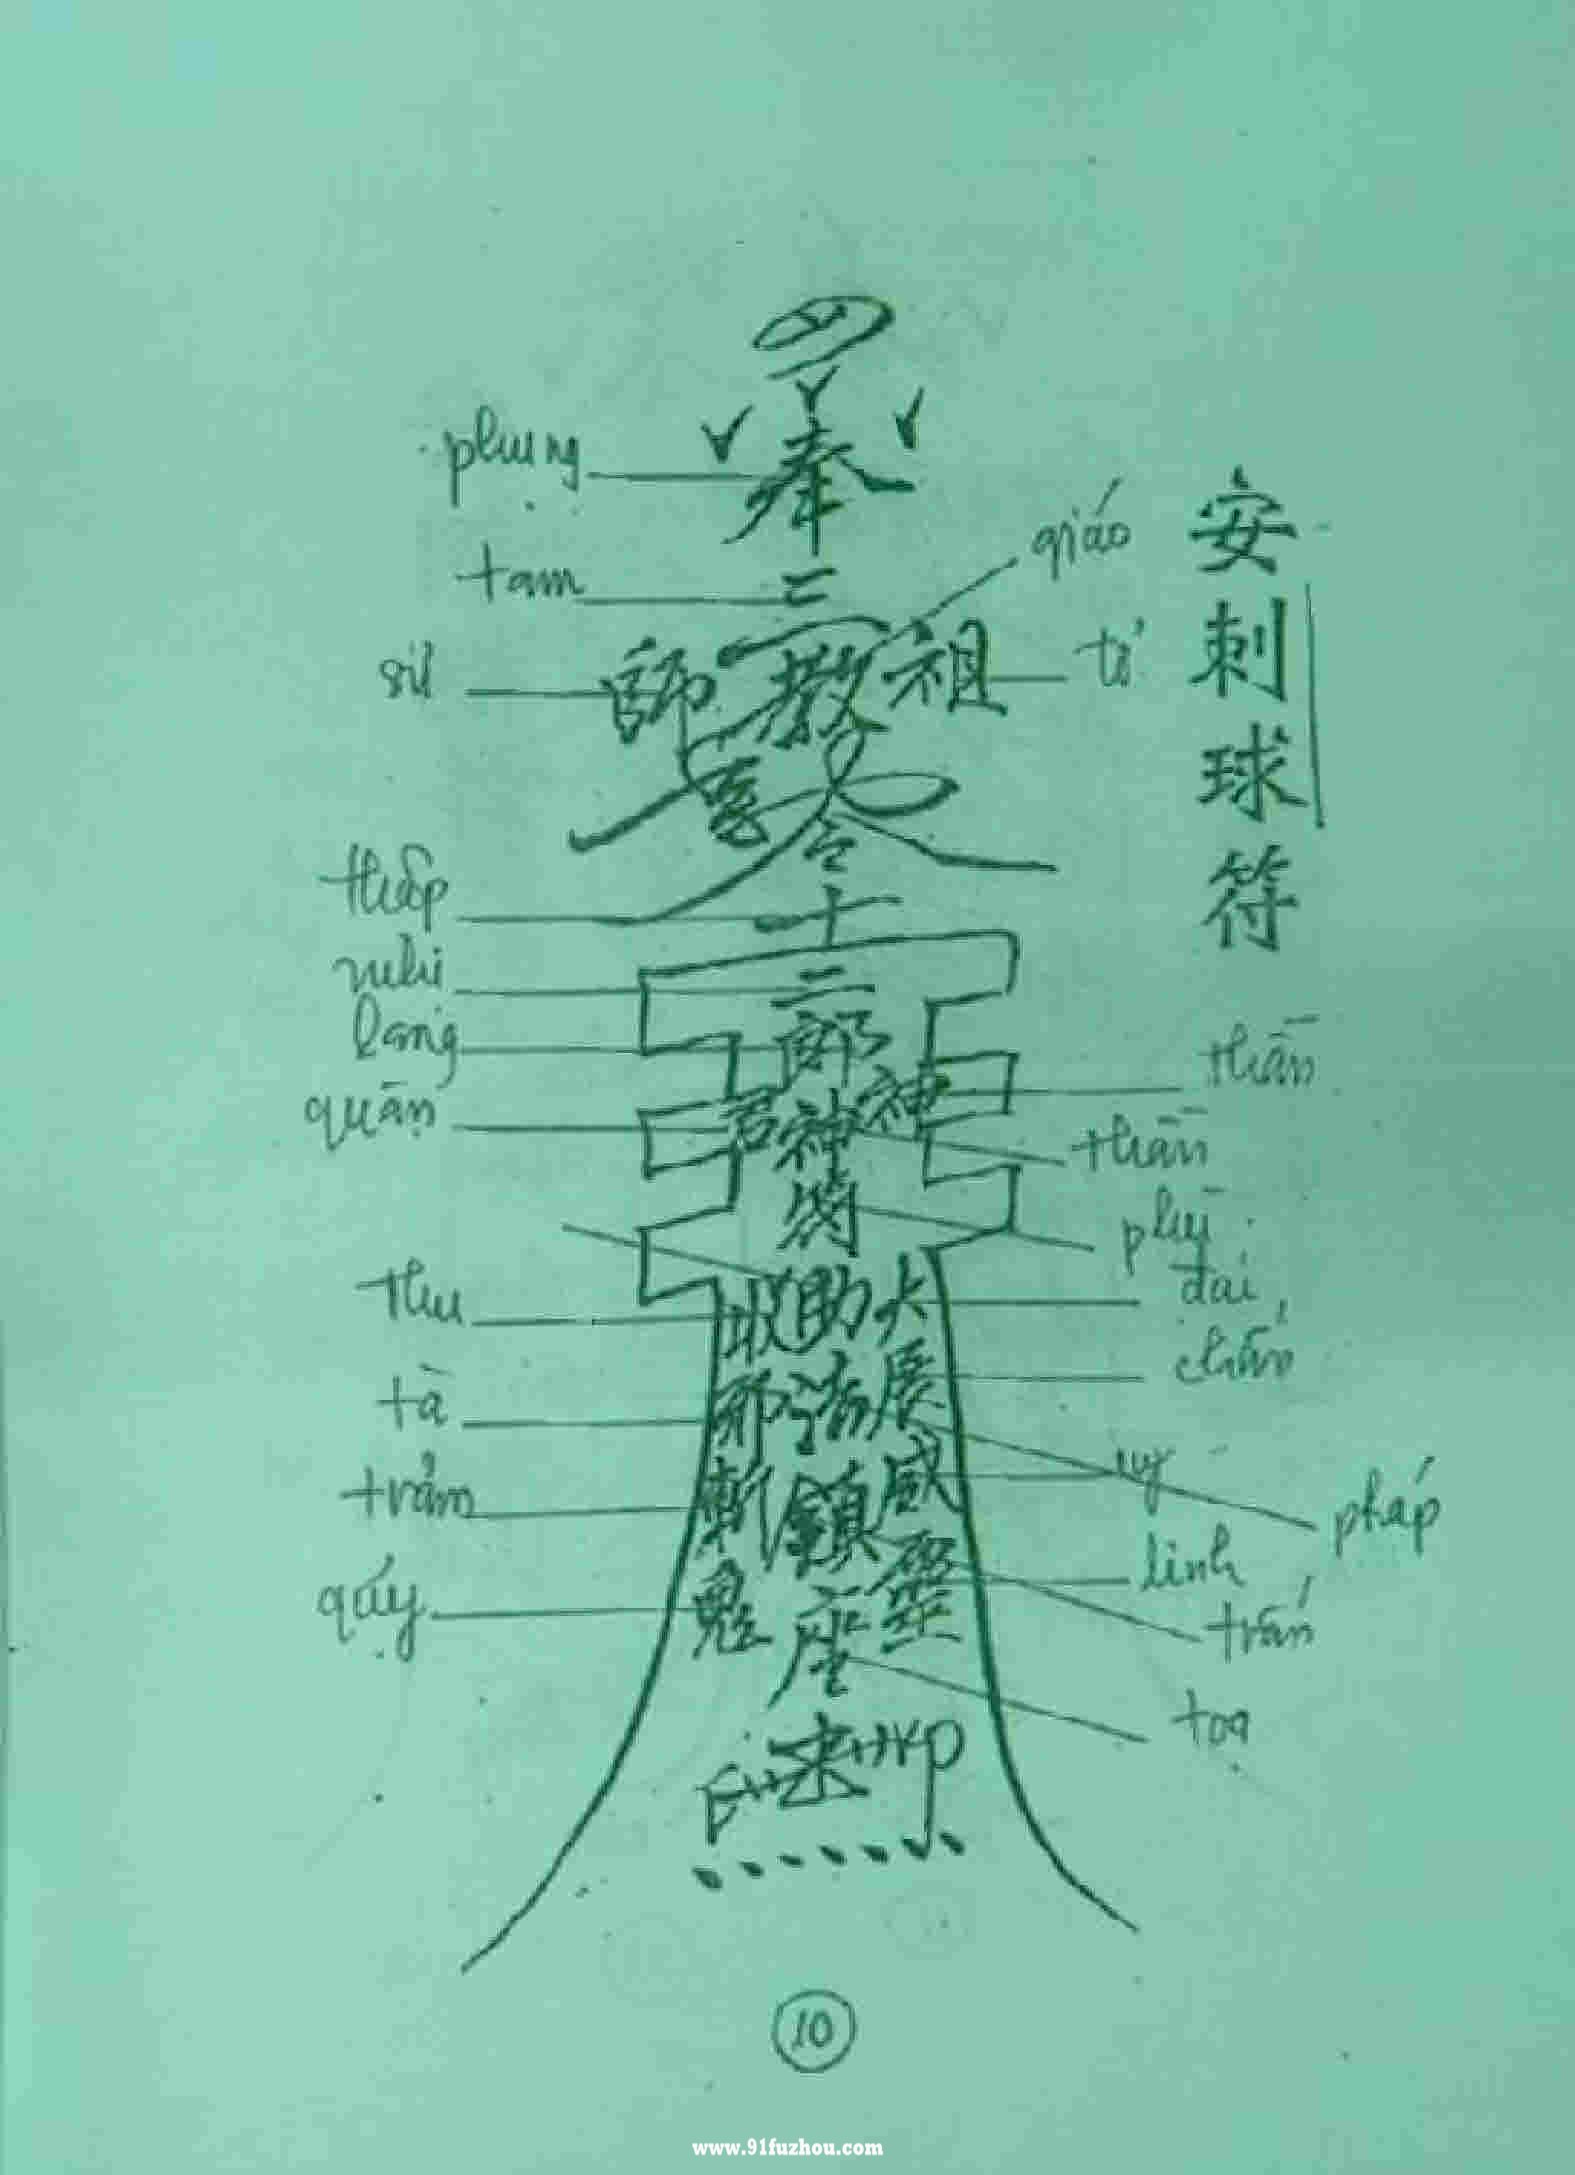 安刺球符
奉
phụng
三
tam
giáo
師 教 祖
sư
tổ
令
十
thập
二
nhị
郎
lang
thần
君 神 神
quân
thần
符
phù
收 助 大
thu
đại
邪 法 展
tà
uy
pháp
斬 鎮 威
trảm
linh
trấn
鬼 座 靈
qúy
toạ
10
www.91fuzhou.com